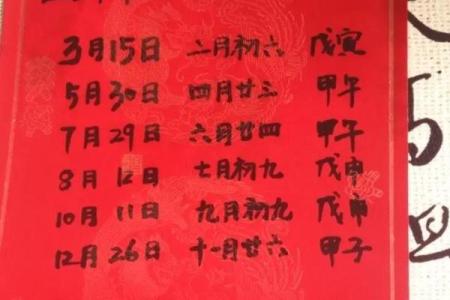 3月15日 二月初六 戊寅
5月30日 四月廿三 甲午
7月29日 六月廿四 甲午
8月12日 七月初九 戊申
10月11日 九月初九 戊申
12月26日 十一月廿六 甲子